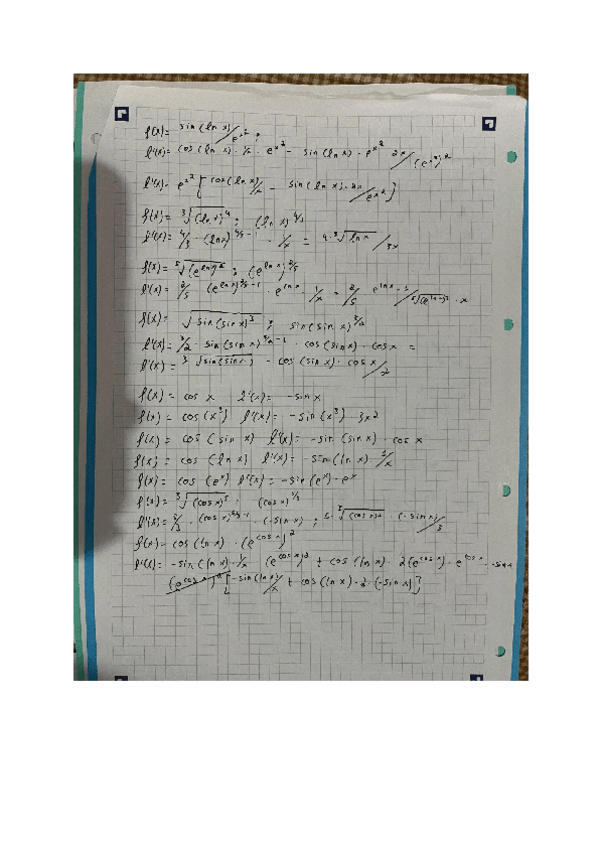 f(x)= sin(ln x)/e^x² ;
f'(x)= cos(ln x) · 1/x · e^x² - sin(ln x) · e^x² 2x/(e^x²)²
f'(x)= e^x² [cos(ln x)/x - sin(ln x) · 2x/e^x²]
f(x)= ³√(ln x)⁴ ; (ln x)^4/3
f'(x)= 4/3 · (ln x)^4/3-1 · 1/x = 4 · ³√ln x/3x
f(x)= ⁵√(e^ln x)² ; (e^ln x)^2/5
f'(x)= 2/5 (e^ln x)^2/5-1 · e^ln x · 1/x = 2/5
f(x)= √sin(sin x)³ ; sin(sin x)^3/2
f'(x)= 3/2 · sin(sin x)^3/2-1 · cos(sin x) · cos x =
f'(x)= 3 √sin(sin x) · cos(sin x) · cos x/2
f(x)= cos x f'(x)= -sin x
f(x)= cos(x³) f'(x)= -sin(x³) 3x²
f(x)= cos(sin x) f'(x)= -sin(sin x) · cos x
f(x)= cos(ln x) f'(x)= -sin(ln x) · 1/x
f(x)= cos(e^x) f'(x)= -sin(e^x) · e^x
f(x)= ³√(cos x)⁵ ; (cos x)^5/3
f'(x)= 5/3 · (cos x)^5/3-1 · (-sin x) ; 5 · ³√(cos x)² · (-sin x)/3
f(x)= cos(ln x) · (e^cos x)²
f'(x)= -sin(ln x) · 1/x · (e^cos x)² + cos(ln x) · 2(e^cos x) · e^cos x · -sin x
(e^cos x)² [-sin(ln x)/x + cos(ln x) · 2 · (-sin x)]